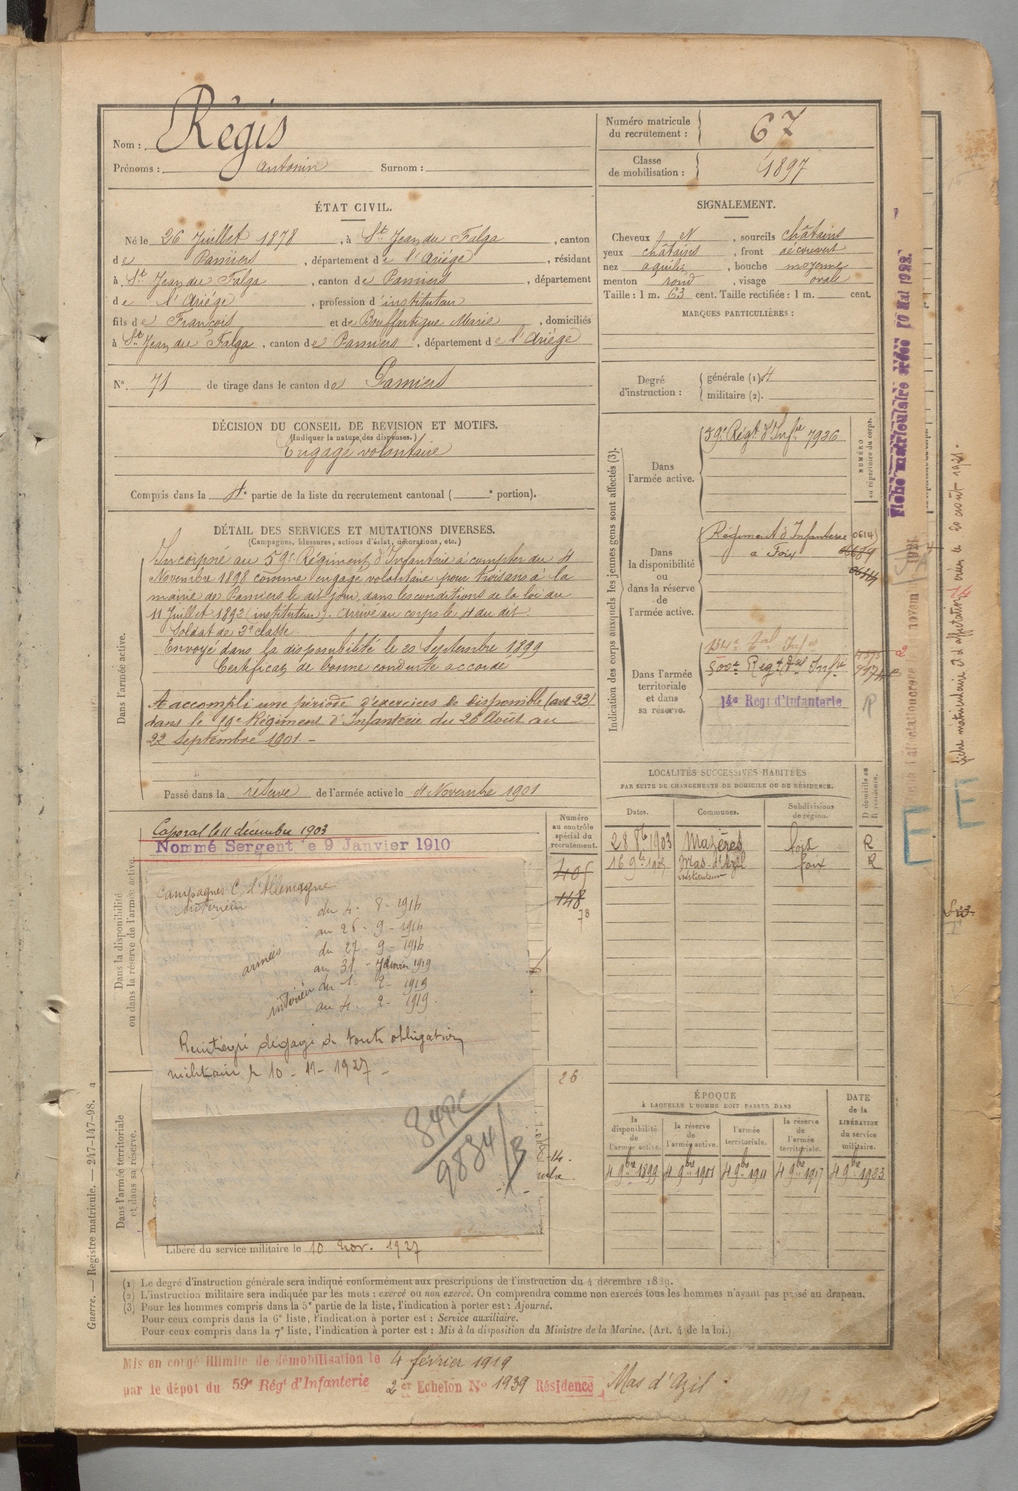 Nom : Régis
Prénoms : Antonin Surnom :
Numéro matricule du recrutement : 67
Classe de mobilisation : 1897
ÉTAT CIVIL.
Né le 26 Juillet 1878, à St Jean du Falga, canton
de Pamiers, département de l'Ariége, résidant
à St Jean du Falga, canton de Pamiers, département
de l'Ariége, profession d'instituteur
fils de François et de Bouffartigue Marie, domiciliés
à St Jean du Falga, canton de Pamiers, département de l'Ariége
N° 71 de tirage dans le canton de Pamiers
SIGNALEMENT.
Cheveux et sourcils châtains
yeux châtains, front découvert
nez aquilin, bouche moyenne
menton rond, visage ovale
Taille : 1 m. 63 cent. Taille rectifiée : 1 m. cent.
MARQUES PARTICULIÈRES :
Degré d'instruction : générale (1) 4
militaire (2).
DÉCISION DU CONSEIL DE REVISION ET MOTIFS.
(Indiquer la nature des dispenses.)
Engagé volontaire
Compris dans la 4e partie de la liste du recrutement cantonal ( e portion).
DÉTAIL DES SERVICES ET MUTATIONS DIVERSES.
(Campagnes, blessures, actions d'éclat, décorations, etc.)
Dans l'armée active.
Incorporé au 59e Régiment d'Infanterie à compter du 4
Novembre 1898 comme engagé volontaire pour trois ans à la
mairie de Pamiers le dit jour, dans les conditions de la loi du
11 Juillet 1892 (instituteur). Arrivé au corps le 4 du dit
Soldat de 2e classe
Envoyé dans la disponibilité le 20 Septembre 1899
Certificat de bonne conduite accordé
A accompli une période d'exercices de disponible (art 23)
dans le 19e Régiment d'Infanterie du 26 Août au
22 Septembre 1901 -
Passé dans la réserve de l'armée active le 4 Novembre 1901
Indication des corps auxquels les jeunes gens sont affectés (3).
NUMÉRO au répertoire du corps.
Dans l'armée active.
59e Régt d'Infie 7936
Dans la disponibilité ou dans la réserve de l'armée active.
Régiment d'Infanterie
à Foix
Dans l'armée territoriale et dans sa réserve.
14e Régt d'Infanterie
R
LOCALITÉS SUCCESSIVES HABITÉES
PAR SUITE DE CHANGEMENTS DE DOMICILE OU DE RÉSIDENCE.
Dates. Communes. Subdivisions de région. D domicile ou R résidence.
28 8bre 1903 Mazères foix R
16 9bre Mas d'Azil foix R
instituteur
Dans la disponibilité ou dans la réserve de l'armée active.
Numéro au contrôle spécial du recrutement.
Caporal le 11 décembre 1903
Nommé Sergent le 9 Janvier 1910
148
78
Campagnes C. l'Allemagne
intérieur du 4 - 8 - 1914
au 26 - 9 - 1914
armées du 27 - 9 - 1914
au 31 - Janvier 1919
intérieur du 1 - 2 - 1919
au 4 - 2 - 1919.
dégagé de toute obligation
militaire le 10 - 11 - 1927 -
26
9884/B
Dans l'armée territoriale et dans sa réserve.
Libéré du service militaire le 10 Nov. 1927
ÉPOQUE
À LAQUELLE L'HOMME DOIT PASSER DANS
la disponibilité de l'armée active. la réserve de l'armée active. l'armée territoriale. la réserve de l'armée territoriale. DATE de la LIBÉRATION du service militaire.
4 9bre 1899 4 9bre 1901 4 9bre 1911 4 9bre 1917 4 9bre 1923
(1) Le degré d'instruction générale sera indiqué conformément aux prescriptions de l'instruction du 4 décembre 1889.
(2) L'instruction militaire sera indiquée par les mots : exercé ou non exercé. On comprendra comme non exercés tous les hommes n'ayant pas passé au drapeau.
(3) Pour les hommes compris dans la 5e partie de la liste, l'indication à porter est : Ajourné.
Pour ceux compris dans la 6e liste, l'indication à porter est : Service auxiliaire.
Pour ceux compris dans la 7e liste, l'indication à porter est : Mis à la disposition du Ministre de la Marine. (Art. 4 de la loi.)
Mis en congé illimité de démobilisation le 4 février 1919
par le dépôt du 59e Régt d'Infanterie 2er Echelon N° 1939 Résidence Mas d'Azil.
Guerre. — Registre matricule. — 247-147-98. a
Fiche matriculaire créée 10 Mai 1922.
E
E